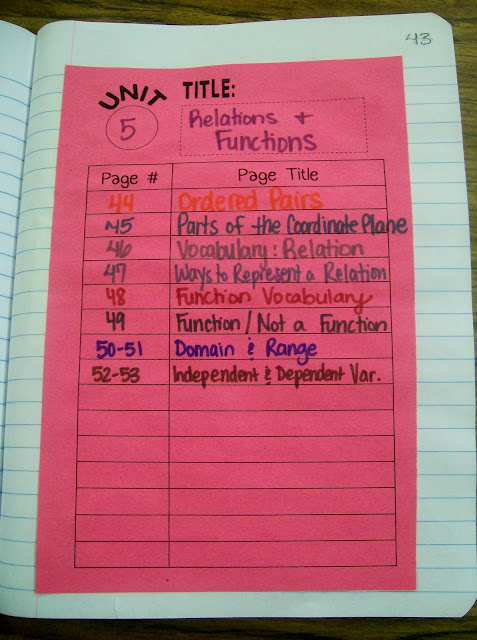 43
UNIT TITLE:
5 Relations +
Functions
Page # Page Title
44 Ordered Pairs
45 Parts of the Coordinate Plane
46 Vocabulary: Relation
47 Ways to Represent a Relation
48 Function Vocabulary
49 Function / Not a Function
50-51 Domain & Range
52-53 Independent & Dependent Var.